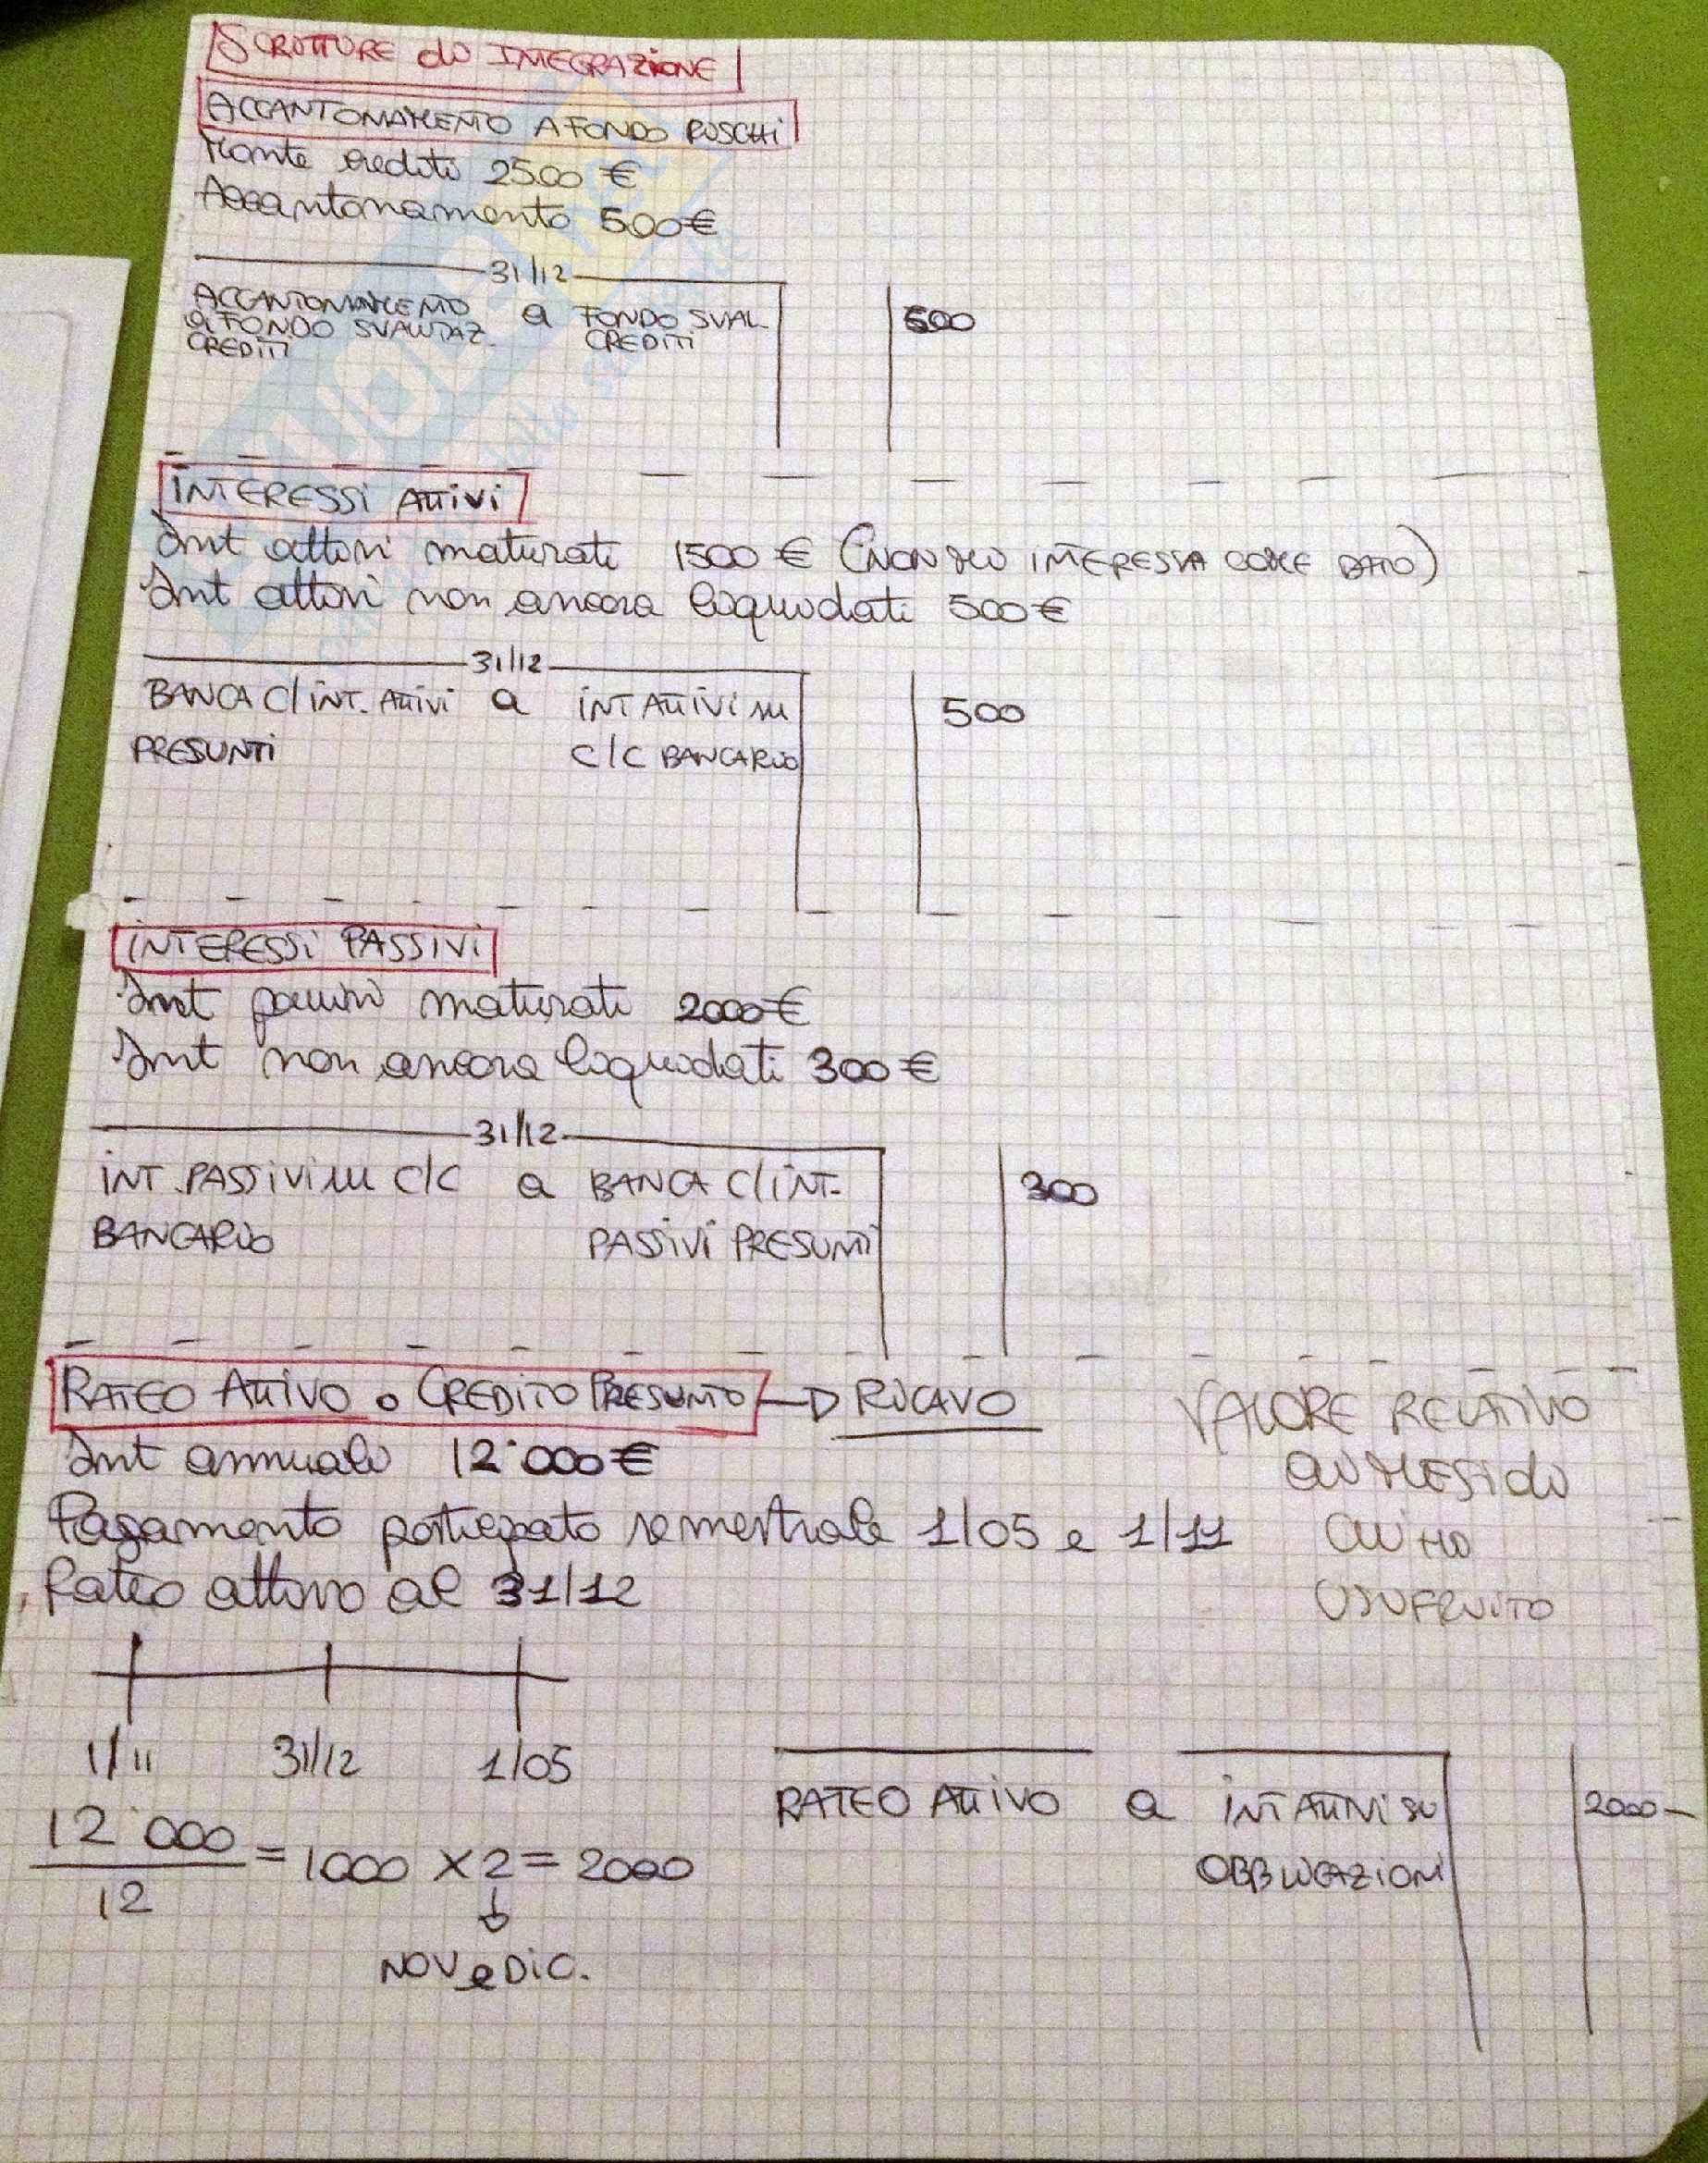 SCRITTURE di INTEGRAZIONE
ACCANTONAMENTO A FONDO RISCHI
Monte crediti 2500 €
Accantonamento 500 €
31/12
ACCANTONAMENTO a FONDO SVAL.
a FONDO SVALUTAZ. CREDITI
CREDITI
500
INTERESSI ATTIVI
Int attivi maturati 1500 € (NON MI INTERESSA COME DATO)
Int attivi non ancora liquidati 500 €
31/12
BANCA C/ INT. ATTIVI a INT ATTIVI su 500
PRESUNTI C/C BANCARIO
INTERESSI PASSIVI
Int passivi maturati 2000 €
Int non ancora liquidati 300 €
31/12
INT. PASSIVI su C/C a BANCA C/ INT. 300
BANCARIO PASSIVI PRESUNTI
RATEO ATTIVO o CREDITO PRESUNTO → RICAVO
Int annuale 12'000 €
Pagamento posticipato semestrale 1/05 e 1/11
Rateo attivo al 31/12
VALORE RELATIVO
AI MESI di
CUI HO
USUFRUITO
1/11 31/12 1/05
12'000
12
= 1000 × 2 = 2000
↓
NOV e DIC.
RATEO ATTIVO a INT ATTIVI su 2000
OBBLIGAZIONI